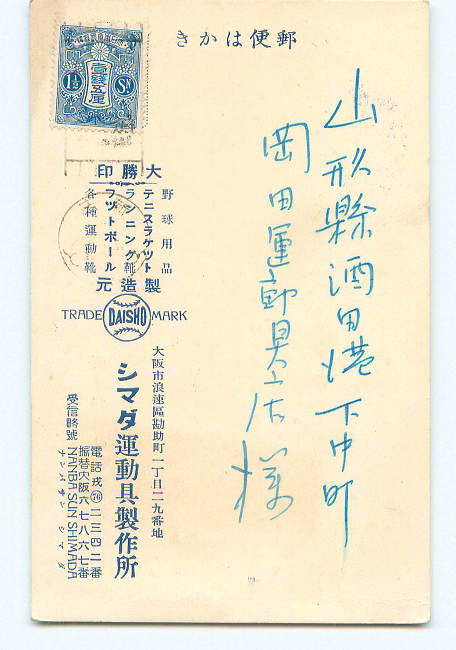 郵便はかき
壹錢五厘
1½
Sn
山形縣酒田港下中町
岡田運動具店様
大勝印
野球用品
テニスラケット
ランニング靴
フットボール
各種運動靴
製造元
TRADE DAISHO MARK
大阪市浪速區勘助町一丁目二九番地
シマダ運動具製作所
電話戎(76)二三四二番
振替大阪六七八六七番
受信略號
NANBA SUN SHIMADA
ナンバサン シマダ